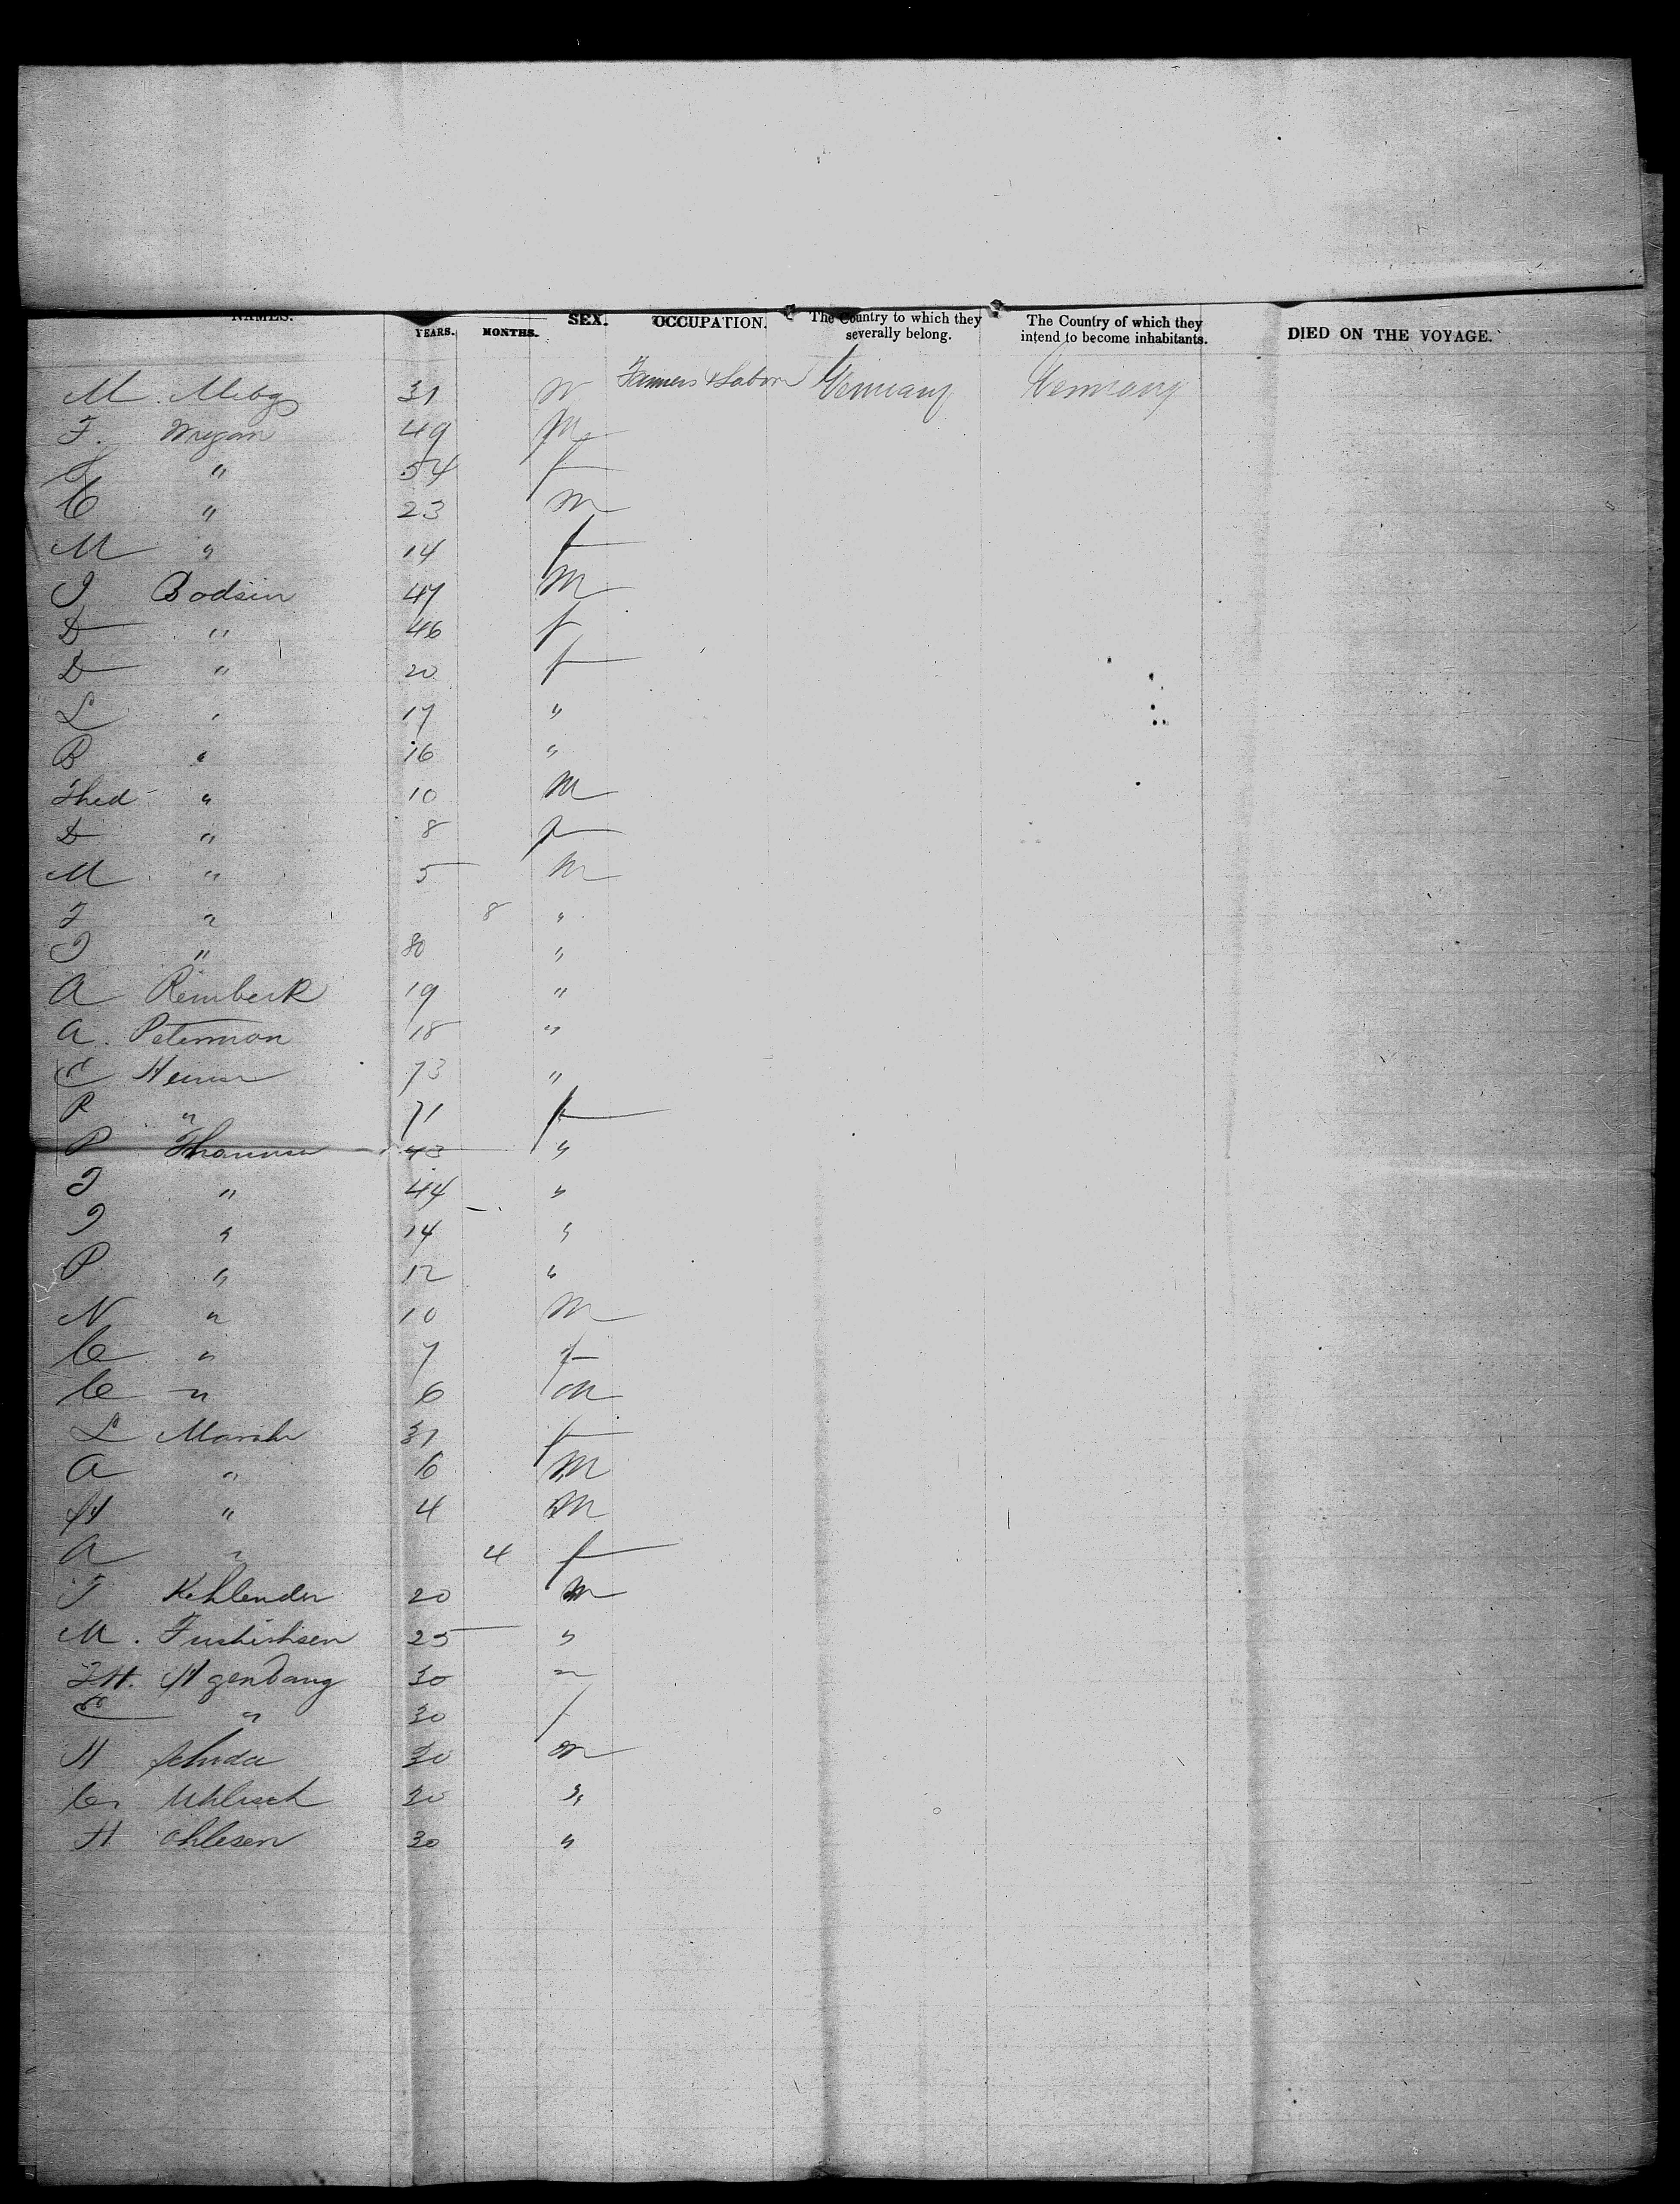 NAMES. YEARS. MONTHS. SEX. OCCUPATION. The Country to which they severally belong. The Country of which they intend to become inhabitants. DIED ON THE VOYAGE.
M. 31 m Farmers & Labor Germany Germany
F. Megan 49 m
" 54 f
C " 23 m
M " 14 f
J Bodsin 47 m
D " 46 f
D " 20 f
L " 17 "
B " 16 "
Thed " 10 m
D " 8 f
M " 5 m
J " 8 "
J " 80 "
A Reimberk 19 "
A. Peterman 18 "
C 73 "
P " 71 f
P Thomsen 43 "
J " 44 "
J " 14 "
P " 12 "
N " 10 m
C " 7 f
C " 6 m
L 31 f
A " 6 m
H " 4 m
A " 4 f
J Kehlender 20 m
M. 25 "
J H. 30 "
E " 30 f
H Schuda 30 m
C Uhlisch 20 "
H Ohlesen 30 "